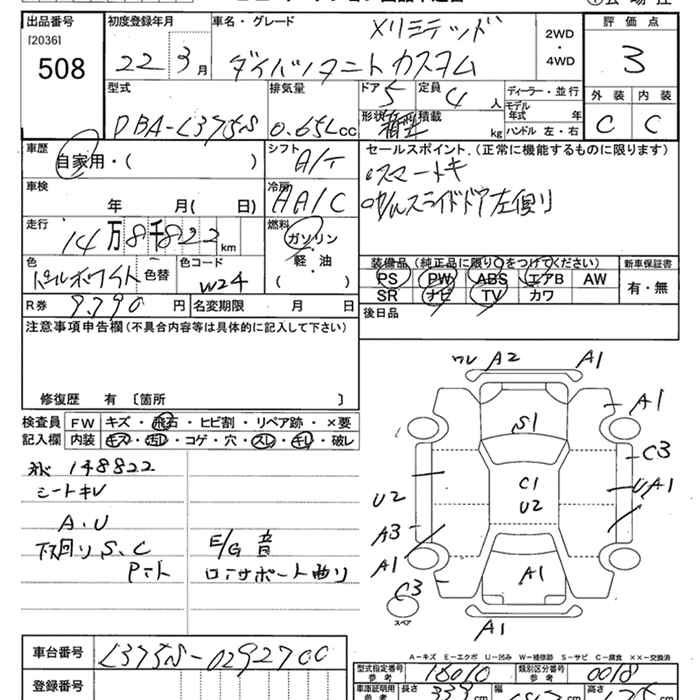 出品番号 初度登録年月 車名・グレード メリミテッド 評価点
[2036] 508
22年 3月 ダイハツ タントカスタム 2WD・4WD 3
型式 排気量 ドア 5 定員 4人 ディーラー・並行 外装 内装
DBA-L375S 0.65Lcc 形状 箱型 積載 kg モデル年式 年 ハンドル 左・右 C C
車歴 自家用・( ) シフト A/T セールスポイント.(正常に機能するものに限ります)
スマートキ
車検 年 月( 日) 冷房 AA/C パワースライドドア左便り
走行 14万8千822km 燃料 ガソリン・軽油 ( )
色 パールホワイト 色替 色コード W24
装備品(純正品に限り○をつけてください) 新車保証書
PS PW ABS エアB AW 有・無
SR ナビ TV カワ
R券 9,790円 名変期限 月 日 後日品
注意事項申告欄(不具合内容等は具体的に記入して下さい)
修復歴 有〔箇所 〕
検査員記入欄 FW キズ・飛石・ヒビ割・リペア跡・×要
内装 キズ・汚し・コゲ・穴・スレ・キレ・破レ
148822
シートキレ
A.U
下回りS.C E/G音
コアサポート曲り
ワレ A2 A1
A1
S1
C3
C1
UA1
U2 U2
A3
A1
A1
C3
スペア
A1
A-キズ E-エクボ U-凹み W-補修跡 S-サビ C-腐食 ××-交換済
車台番号 L375S-0292700
型式指定番号 参考 16010 類別区分番号 参考 0018
登録番号 車庫証明用 参考 長さ 339cm 幅 高さ 175cm